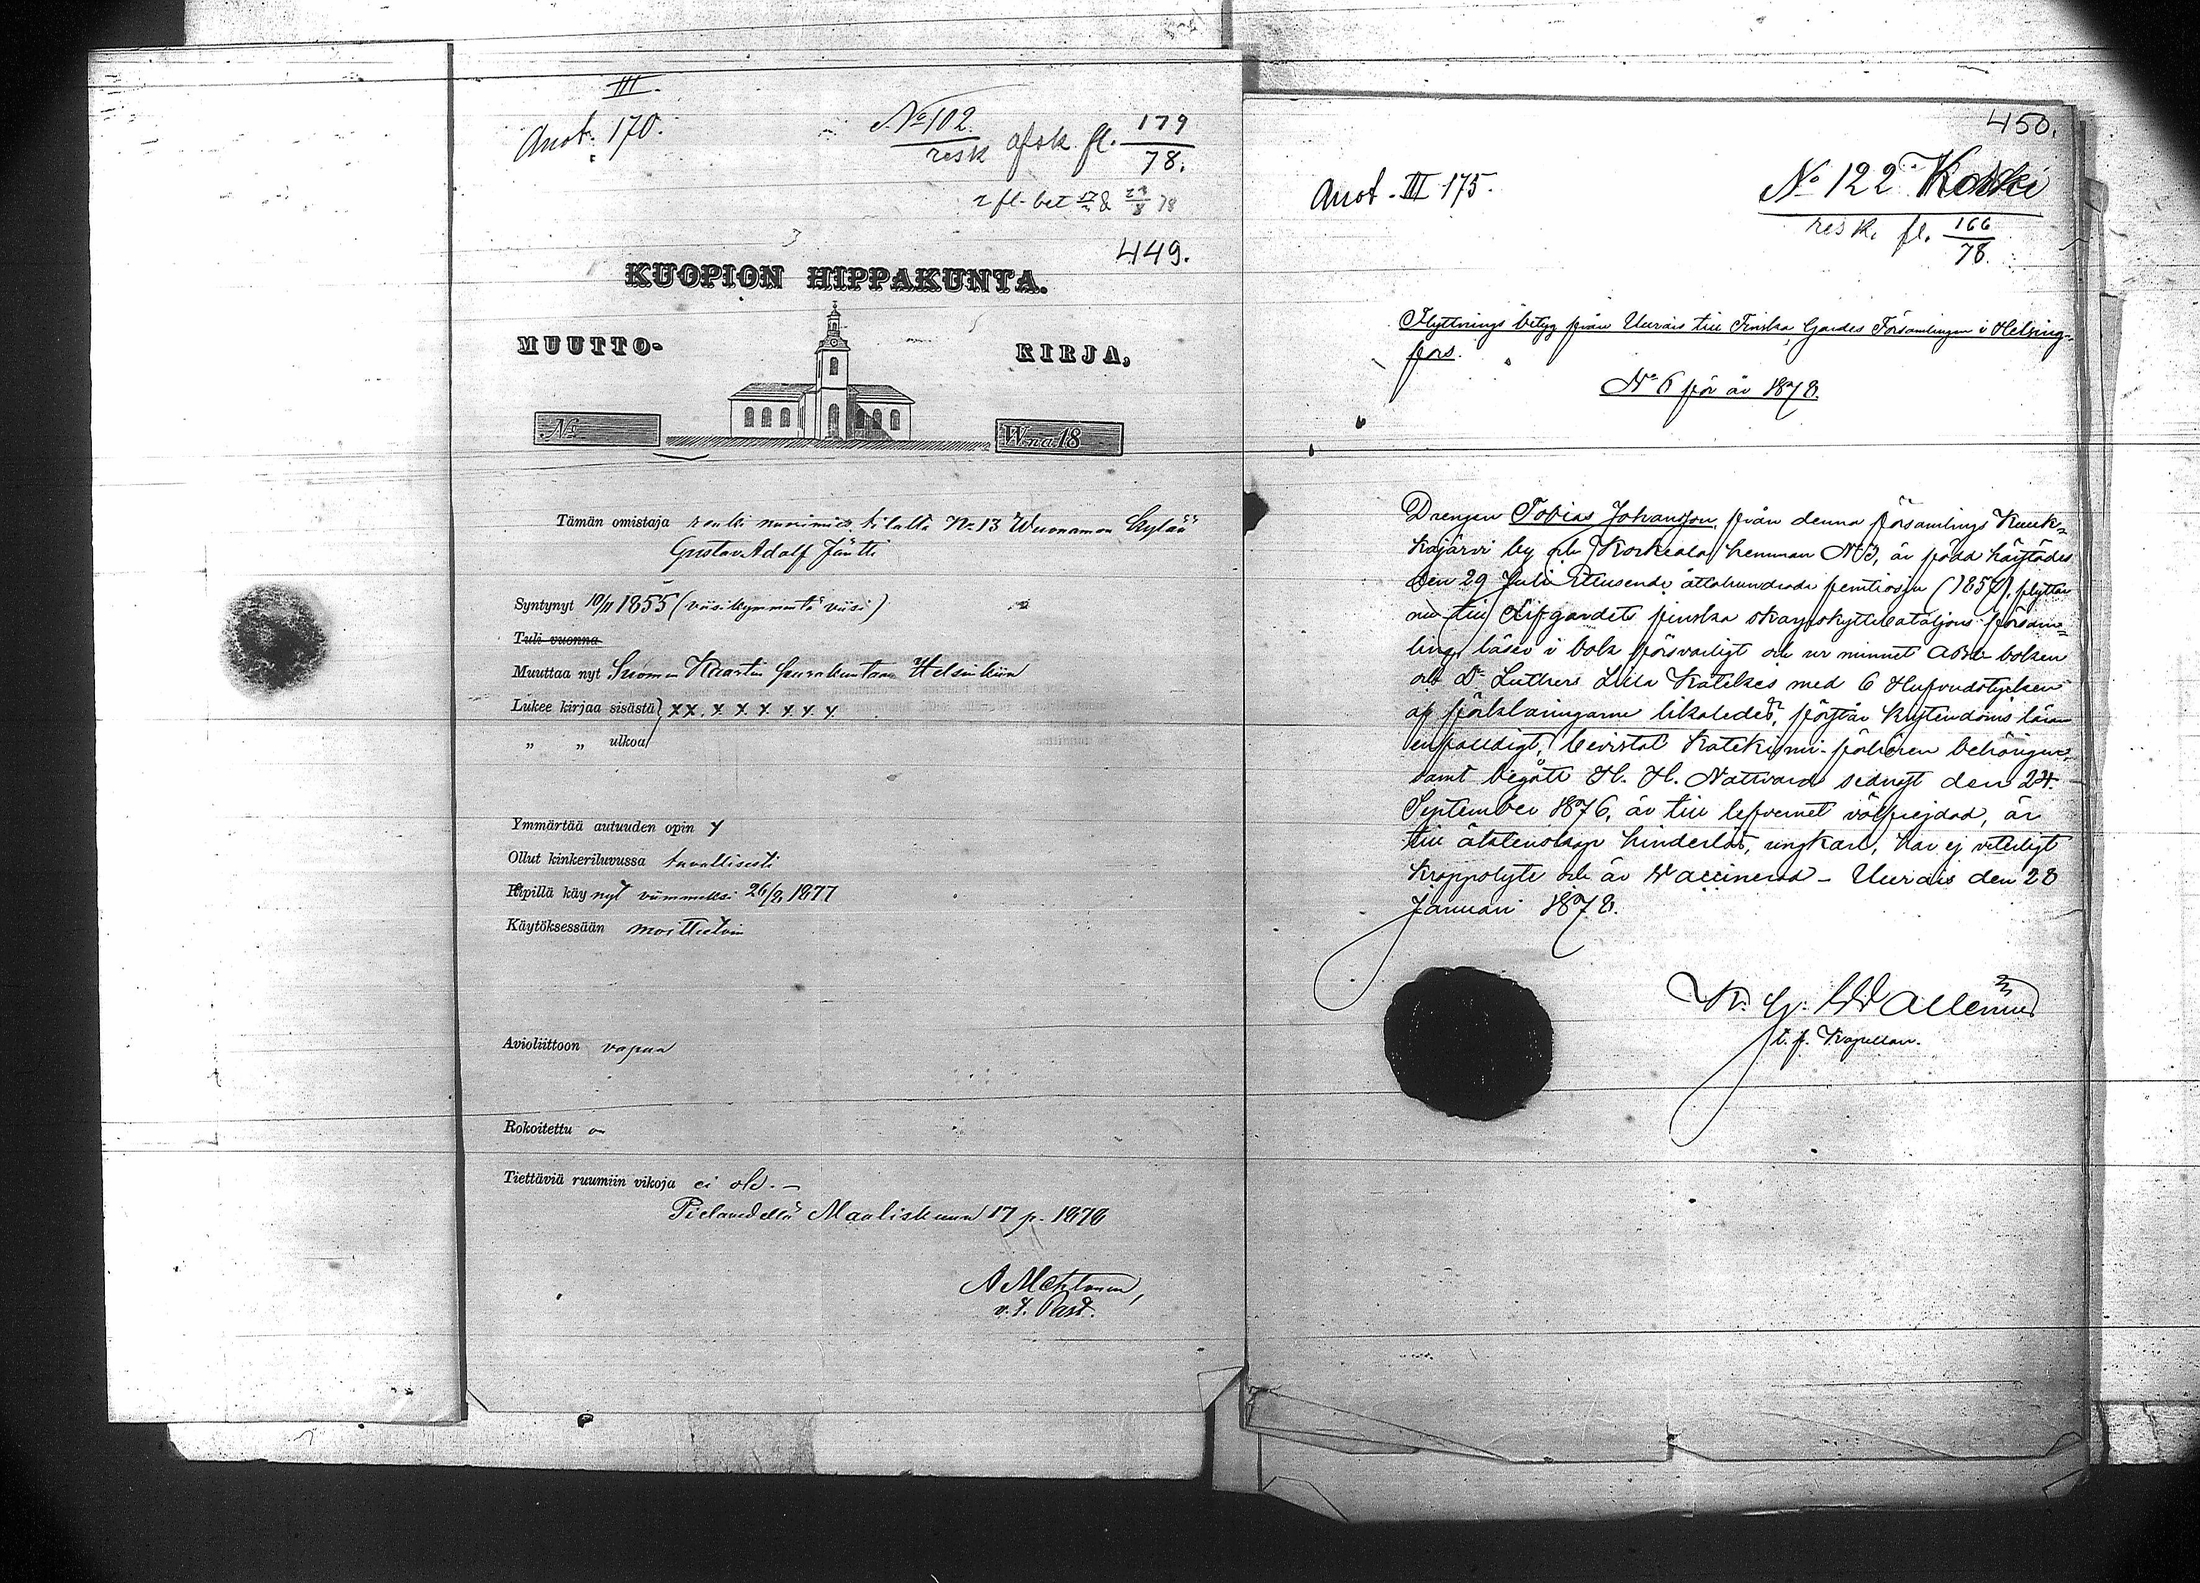 III.
Anot. 170.
No 102
resk afsk. fl. 179
78.
449.
KUOPION HIPPAKUNTA.
MUUTTO- KIRJA,
No W:na 18
Tämän omistaja renki nuorimies tilalta No 13 Wuonamon kylää
Gustav Adolf Jäntti
Syntynyt 10/11 1855 (viisikymmentä viisi)
Tuli vuonna
Muuttaa nyt Suomen Kaartin Seurakuntaan Helsinkiin
Lukee kirjaa sisästä x x. x x x x x x
„ „ ulkoa
Ymmärtää autuuden opin x
Ollut kinkeriluvussa tavallisesti
Ripillä käynyt viimmeksi 26/8 1877
Käytöksessään moitteetoin
Avioliittoon vapaa
Rokoitettu on
Tiettäviä ruumiin vikoja ei ole. —
Pielavedellä Maaliskuun 17 p. 1878
A Mehtonen,
v. t. Past.
450.
Anot. III 175.
No 122 Koski
resk. fl. 166
78.
Flyttnings betyg från Uurais till Finska Gardes Församlingen i Helsing-
fors.
No 6 för år 1878.
Drengen Tobias Johansson, från denna församlings Kuuk-
kajärvi by och Korkeala hemman No 3, är född härstädes
den 29 Juli Ettusende åttahundrade femtiosju (1857), flyttar
nu till Lifgardets finska skarpskyttebataljons försam-
ling, läser i bok försvarligt och ur minnet ABC boken
och Dr Luthers Lilla Katekes med 6 Hufvudstycken
af förklaringarne likaledes, förstår kristendoms läran
enfaldigt, bevistat Katekismi-förhören behörigen,
samt begått H. H. Nattvard senast den 24.
September 1876, är till lefvernet välfrejdad, är
till äktenskap hinderlös, ungkarl, har ej veterligt
kroppslyte och är vaccinerad – Uurais den 28
Januari 1878.
K. G. Wallenius
t. f. Kapellan.